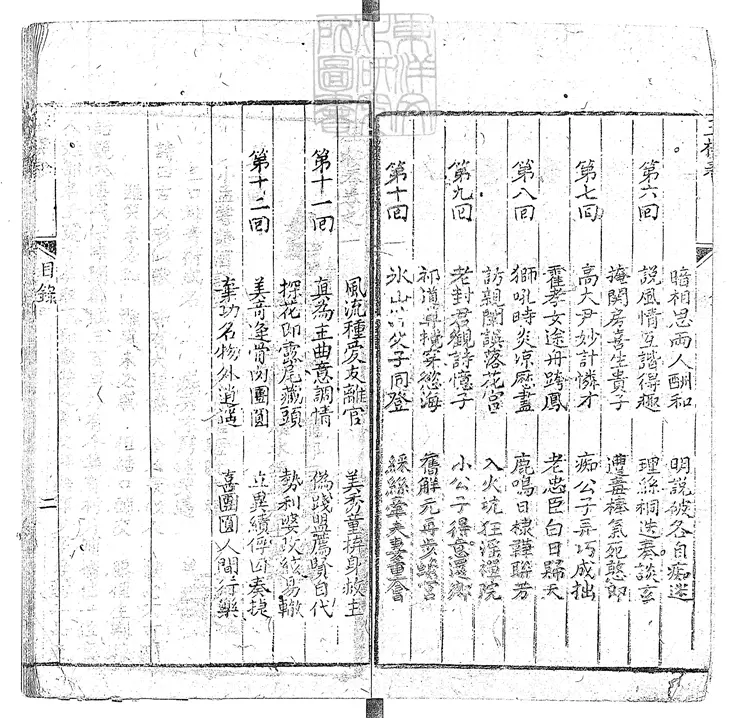 暗相思兩人酬和　明說破各自痴迷
第六回　說風情互諧得趣　理絲桐迭奏談玄
掩関房喜生貴子　遭毒棒氣死憨郎
第七回　高大尹妙計憐才　痴公子弄巧成拙
孝女途舟跨鳳　老忠臣白日歸天
第八回　獅吼時炎凉歷盡　鹿鳴日棣韡聯芳
訪親闈誤落花宮　入火坑狂淫禪院
第九回　老封君觀詩憶子　小公子得意還鄉
道穿慾海　舊解元再步蟾宮
第十回　氷山父子同登　綵絲牽夫妻重會
風流種愛友離官　美秀童拚身救主
第十一回　真為主曲意調情　偽踐盟薦賢自代
探花郎露尾藏頭　勢利婆改絃易轍
第十二回　美奇逢骨肉團圓　立異績俘囚奏捷
棄功名物外逍遥　喜團圓人間行樂
目錄　二
東洋文化研究所圖書